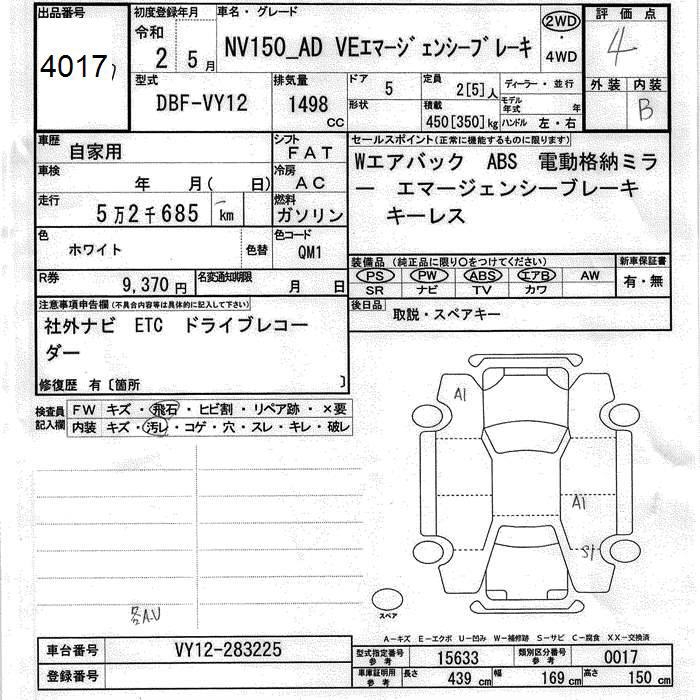 出品番号
4017
初度登録年月
令和
2年 5月
車名・グレード
NV150_AD VEエマージェンシーブレーキ
2WD
・
4WD
評価点
4
外装 内装
B
型式
DBF-VY12
排気量
1498
cc
ドア
5
形状
定員
2[5]人
積載
450[350]kg
ディーラー・並行
モデル年式 年
ハンドル 左・右
車歴
自家用
シフト
FAT
車検
年 月( 日)
冷房
AC
走行
5万2千685 km
燃料
ガソリン
色
ホワイト
色替
色コード
QM1
R券
9,370円
名変通知期限
月 日
セールスポイント(正常に機能するものに限ります)
Wエアバック ABS 電動格納ミラ
ー エマージェンシーブレーキ
キーレス
装備品(純正品に限り○をつけてください)
PS PW ABS エアB AW
SR ナビ TV カワ
新車保証書
有・無
後日品
取説・スペアキー
注意事項申告欄(不具合内容等は具体的に記入して下さい)
社外ナビ ETC ドライブレコー
ダー
修復歴 有〔箇所 〕
検査員
記入欄
FW キズ・飛石・ヒビ割・リペア跡・×要
内装 キズ・汚レ・コゲ・穴・スレ・キレ・破レ
A1
A1
S1
スペア
各A.U
A−キズ E−エクボ U−凹み W−補修跡 S−サビ C−腐食 XX−交換済
車台番号
VY12-283225
登録番号
型式指定番号
参考
15633
類別区分番号
参考
0017
車庫証明用
参考
長さ 439 cm 幅 169 cm 高さ 150 cm